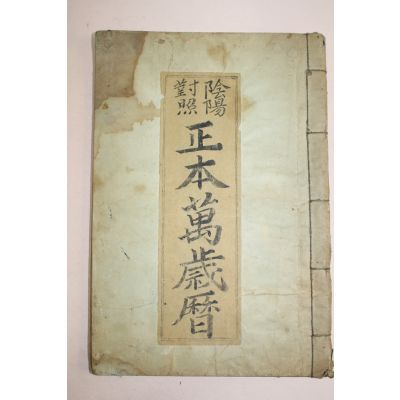 陰陽
對照
正本萬歲曆